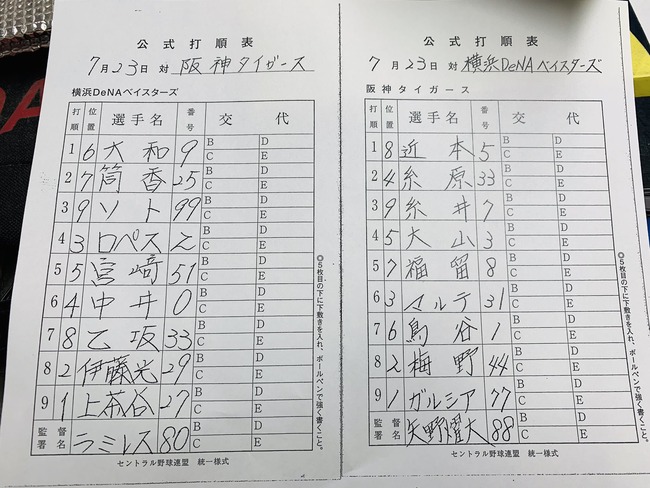 公式打順表
7月23日 対 阪神タイガース
横浜DeNAベイスターズ
打順 位置 選手名 番号 交代
1 6 大和 9 B D C E
2 7 筒香 25 B D C E
3 9 ソト 99 B D C E
4 3 ロペス 2 B D C E
5 5 宮崎 51 B D C E
6 4 中井 0 B D C E
7 8 乙坂 33 B D C E
8 2 伊藤光 29 B D C E
9 1 上茶谷 27 B D C E
監督署名 ラミレス 80 B D C E
セントラル野球連盟 統一様式
◎5枚目の下に下敷きを入れ、ボールペンで強く書くこと。
公式打順表
7月23日 対 横浜DeNAベイスターズ
阪神タイガース
打順 位置 選手名 番号 交代
1 8 近本 5 B D C E
2 4 糸原 33 B D C E
3 9 糸井 7 B D C E
4 5 大山 3 B D C E
5 7 福留 8 B D C E
6 3 マルテ 31 B D C E
7 6 鳥谷 1 B D C E
8 2 梅野 44 B D C E
9 1 ガルシア 77 B D C E
監督署名 矢野燿大 88 B D C E
セントラル野球連盟 統一様式
◎5枚目の下に下敷きを入れ、ボールペンで強く書くこと。